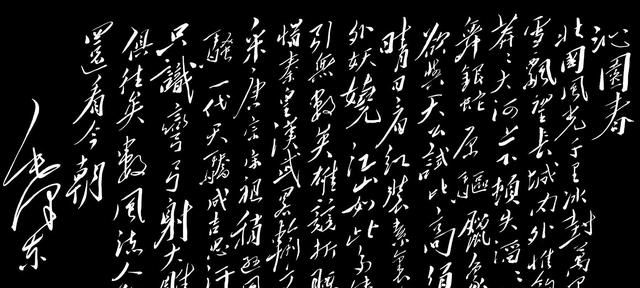 沁園春
北國風光千里冰封萬里
雪飄望長城内外惟餘
莽々大河上下頓失滔々
舞銀蛇原驅臘象
欲與天公試比高須
晴日看紅裝素裹
外妖嬈江山如此多
引無數英雄競折腰
惜秦皇漢武略輸文
采唐宗宋祖稍遜風
騷一代天驕成吉思汗
只識彎弓射大雕
俱往矣數風流人
還看今朝
毛澤东